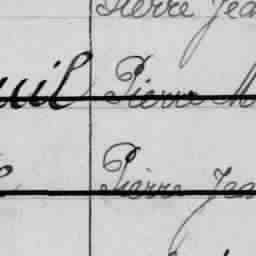 Pierre Jea
uil Pierre M
Pierre Jea